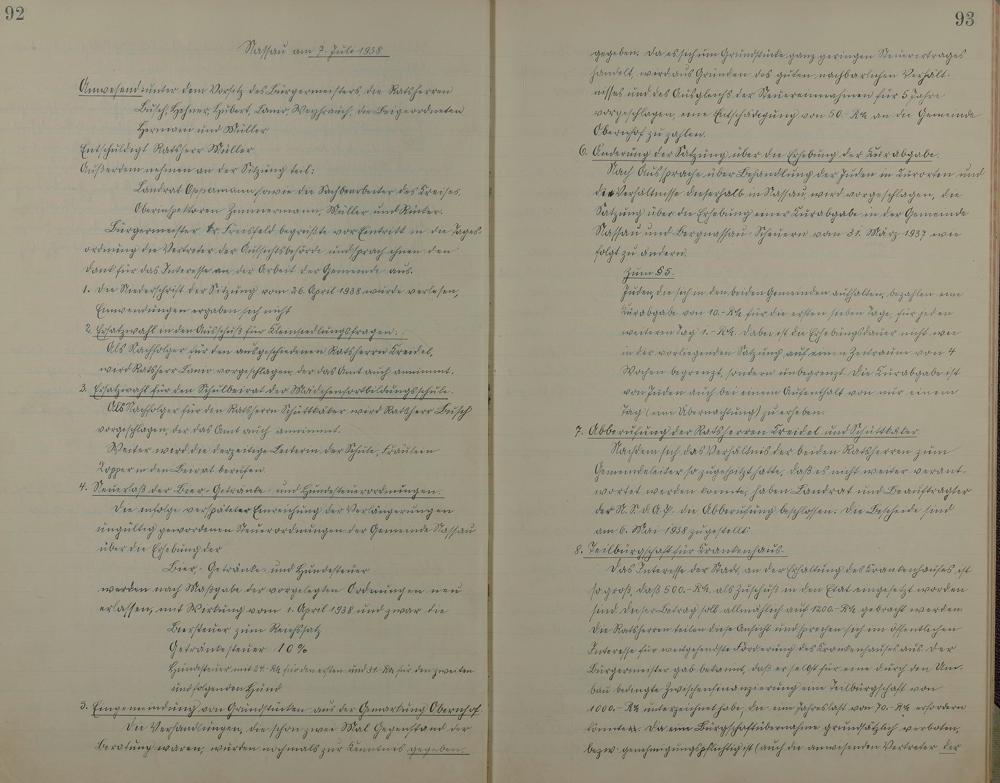 92
Nassau am 7. Juli 1938
Anwesend unter dem Vorsitz des Bürgermeisters die Ratsherren
Busch, Hübert, Lanio, Weyhrauch, die Beigeordneten
Hermann und Müller
Entschuldigt Ratsherr Müller
Außerdem nehmen an der Sitzung teil:
Landrat sowie die Sachbearbeiter des Kreises,
Oberinspektoren Zimmermann, Müller und
Bürgermeister begrüßte vor Eintritt in die Tages-
ordnung die Vertreter der Aufsichtsbehörde und sprach ihnen den
Dank für das Interesse an der Arbeit der Gemeinde aus.
1. Die Niederschrift der Sitzung vom 26. April 1938 wurde verlesen,
Einwendungen ergaben sich nicht
2. Ersatzwahl in den Ausschuß für Kleinsiedlungsfragen:
Als Nachfolger für den ausgeschiedenen Ratsherrn Kreidel,
wird Ratsherr Lanio vorgeschlagen, der das Amt auch annimmt.
3. Ersatzwahl für den Schulbeirat der Mädchenfortbildungsschule.
Als Nachfolger für den Ratsherrn Schüttkäler wird Ratsherr Busch
vorgeschlagen, der das Amt auch annimmt.
Weiter wird die derzeitige Leiterin der Schule, Fräulein
in den Beirat berufen
4. Neuerlaß der Bier-Getränke- und Hundesteuerordnungen.
Die infolge verspäteter Einreichung der Verlängerungen
ungültig gewordenen Steuerordnungen der Gemeinde Nassau
über die Erhebung der
Bier- Getränke- und Hundesteuer
werden nach Maßgabe der vorgelegten Ordnungen neu
erlassen, mit Wirkung vom 1. April 1938 und zwar die
Biersteuer zum Reichssatz
Getränkesteuer 10 %
Hundesteuer mit 24.-RM für den ersten und 31.-RM für den zweiten
und folgenden Hund
5. Eingemeindung von Grundstücken aus der Gemarkung Obernhof
Die Verhandlungen, die schon zwei Mal Gegenstand der
Beratung waren, wurden nochmals zur Kenntnis gegeben.
93
gegeben. Da es sich um Grundstücke ganz geringen Steuerertrages
handelt, wird aus Gründen des guten nachbarlichen Verhält-
nisses und des Ausgleichs der Steuereinnahmen für 5 Jahre
vorgeschlagen, eine Entschädigung von 50.-RM an die Gemeinde
Obernhof zu zahlen.
6. Änderung der Satzung über die Erhebung der Kurabgabe.
Nach Aussprache über Behandlung der Juden in Kurorten und
die Verhältnisse dieserhalb in Nassau, wird vorgeschlagen, die
Satzung über die Erhebung einer Kurabgabe in der Gemeinde
Nassau und Bergnassau-Scheuern vom 31. März 1937 wie
folgt zu ändern.
Zum § 5.
Juden, die sich in den beiden Gemeinden aufhalten, bezahlen eine
Kurabgabe von 10.-RM für die ersten sieben Tage, für jeden
weiteren Tag 1.-RM. Dabei ist die Erhebungsdauer nicht wie
in der vorliegenden Satzung auf einen Zeitraum von 4
Wochen begrenzt, sondern unbegrenzt. Die Kurabgabe ist
von Juden auch bei einem Aufenthalt von nur einem
Tag (eine Übernachtung) zu erheben.
7. Abberufung der Ratsherren Kreidel und Schüttkäler
Nachdem sich das Verhältnis der beiden Ratsherren zum
Gemeindeleiter so zugespitzt hatte, daß es nicht weiter verant-
wortet werden konnte, haben Landrat und Beauftragter
der N.S.D.A.P. die Abberufung beschlossen. Die Bescheide sind
am 6. Mai 1938 zugestellt
8. Teilbürgschaft für Krankenhaus.
Das Interesse der Stadt, an der Erhaltung des Krankenhauses ist
so groß, daß 500.-RM. als Zuschuß in den Etat eingesetzt worden
sind. Dieser Betrag soll allmählich auf 1200.-RM gebracht werden
Die Ratsherren teilen diese Ansicht und sprechen sich im öffentlichen
Interesse für weitgehendste Förderung des Krankenhauses aus. Der
Bürgermeister gab bekannt, daß er selbst für eine durch den Um-
bau bedingte Zwischenfinanzierung eine Teilbürgschaft von
1000.-RM unterzeichnet habe, die eine Jahreslast von 70.-RM erfordern
könnte. Da eine Bürgschaftsübernahme grundsätzlich verboten,
bezw. genehmigungspflichtig ist (auch die anwesenden Vertreter der